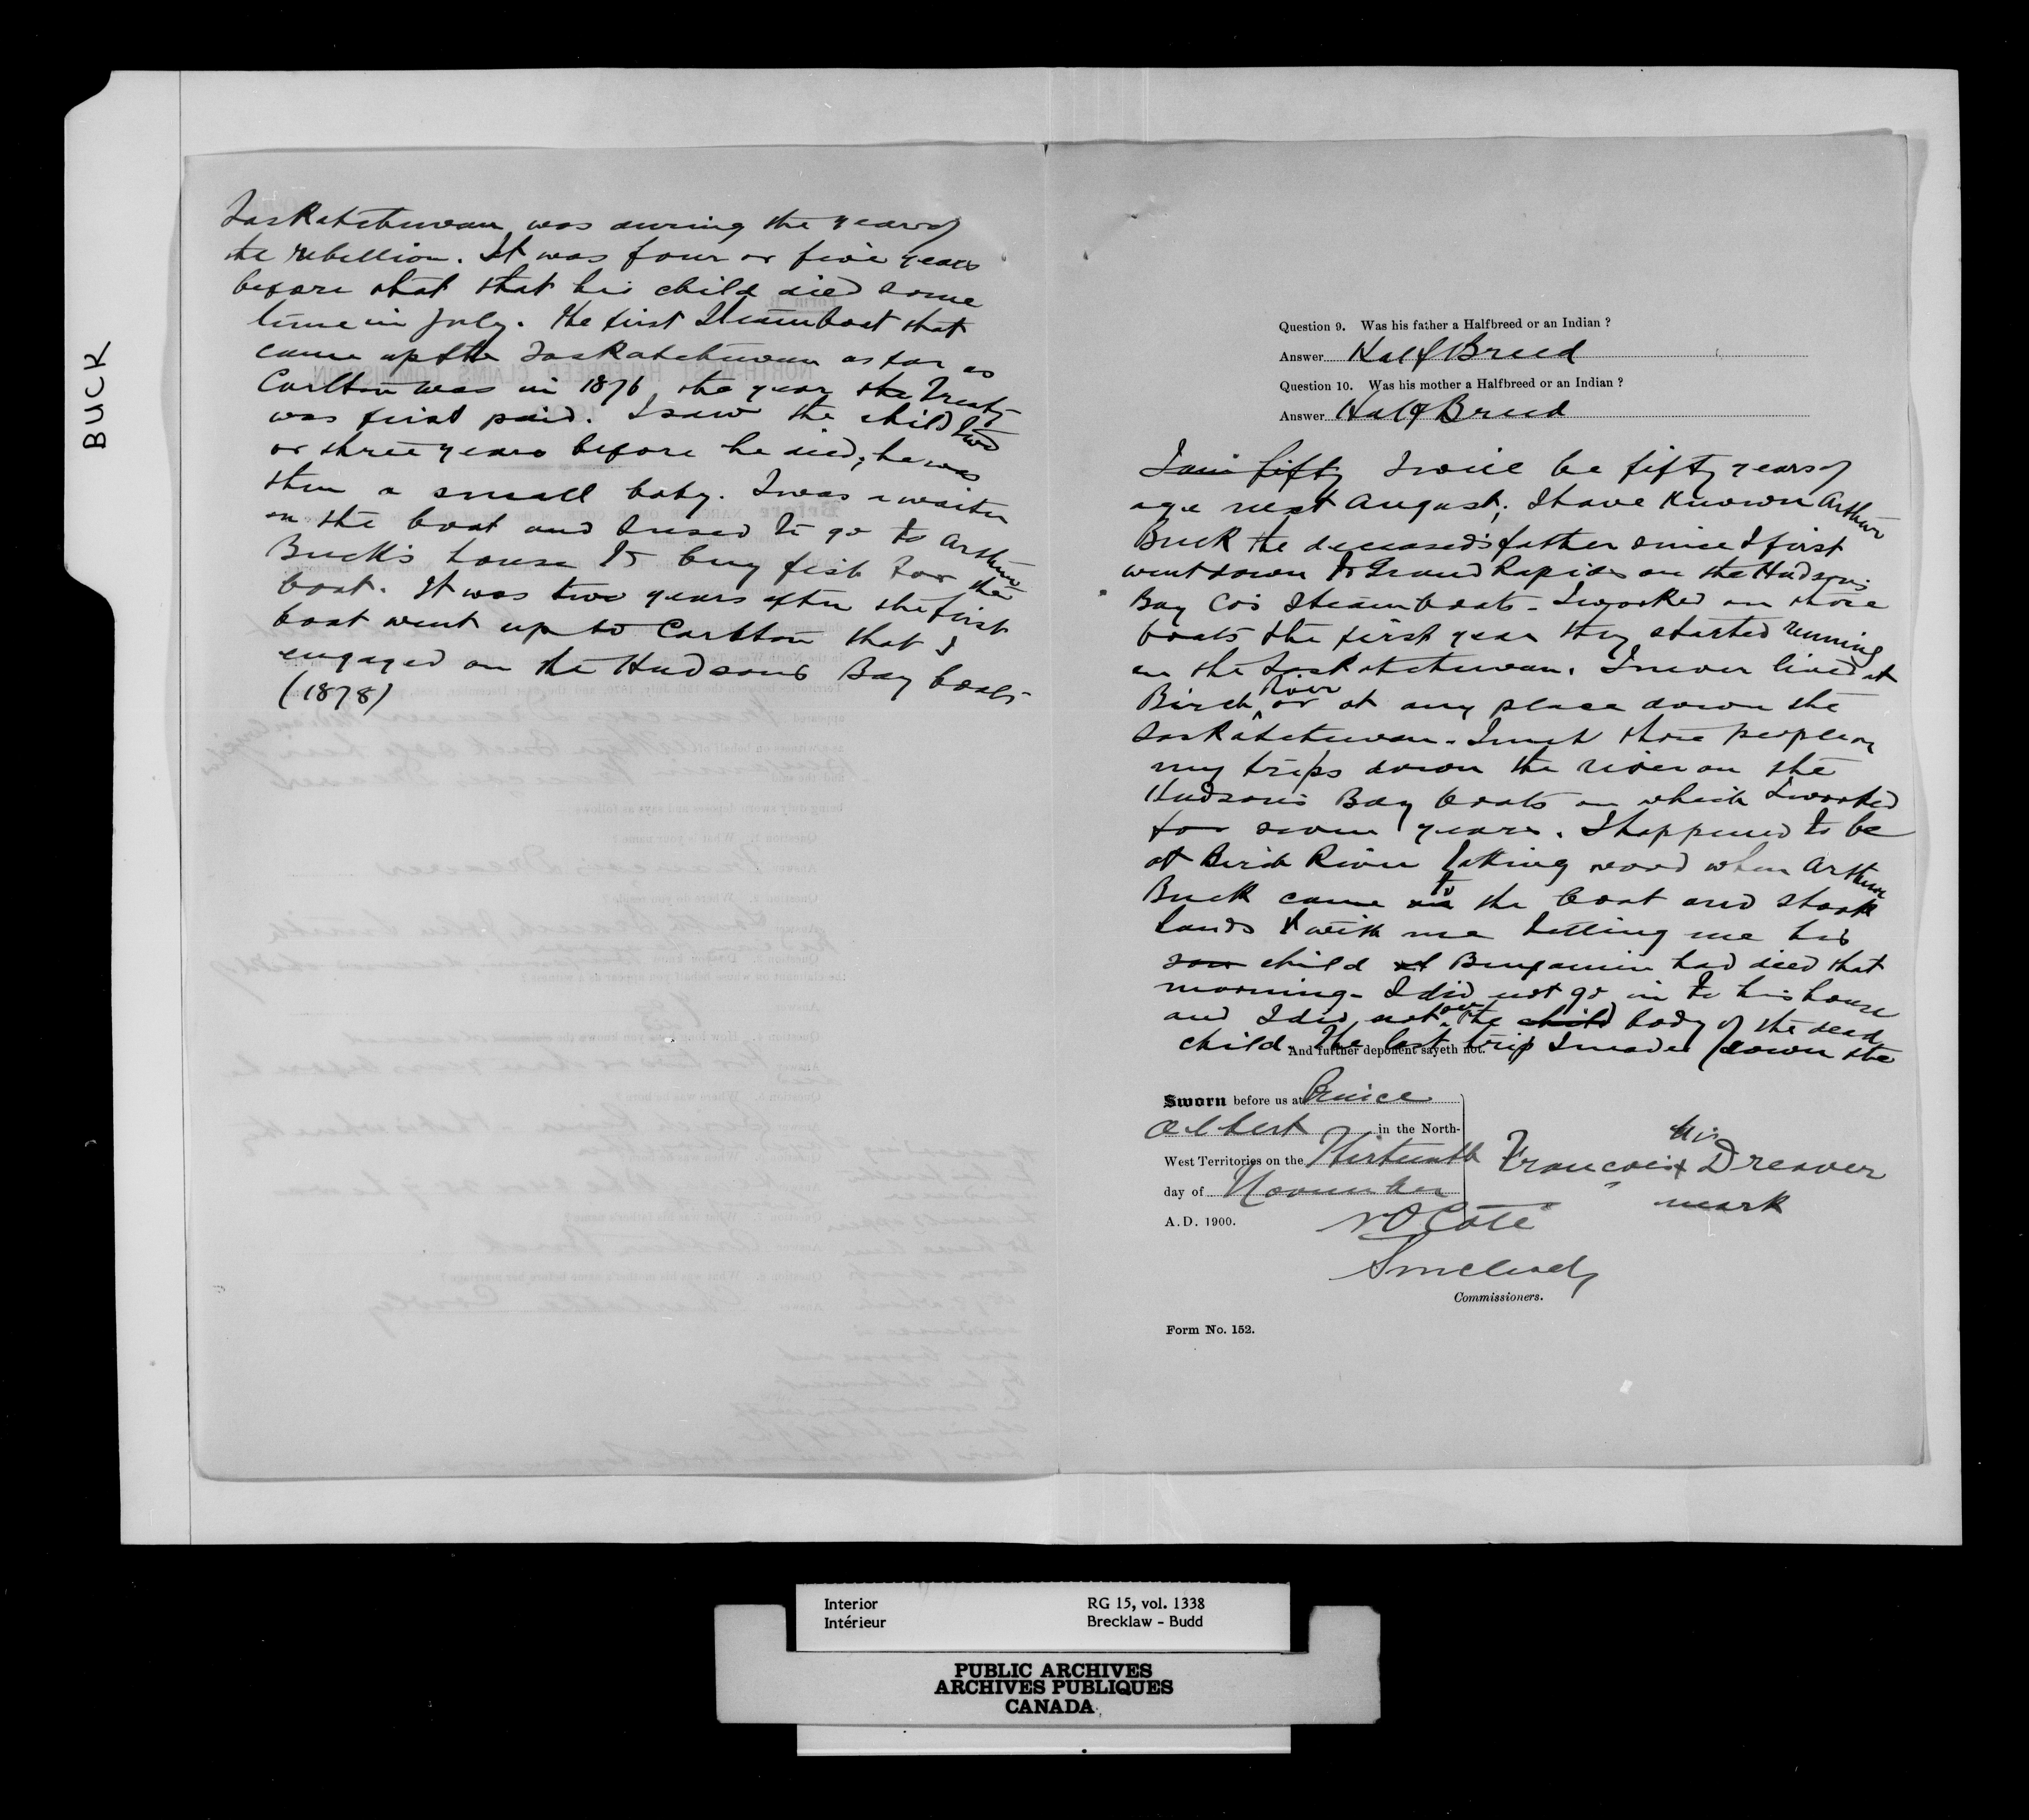 BUCK
Saskatchewan was during the year of
the rebellion. It was four or five years
before that that his child died some
time in July. The first Steamboat that
came up the Saskatchewan as far as
Carlton was in 1876 the year the Treaty
was first paid. I saw the child two
or three years before he died, he was
then a small baby. I was a waiter
on the boat and I used to go to Arthur
Buck's house to buy fish for the
boat. It was two years after the first
boat went up to Carlton that I
engaged on the Hudsons Bay boats
(1878)
Question 9. Was his father a Halfbreed or an Indian ?
Answer Half Breed
Question 10. Was his mother a Halfbreed or an Indian ?
Answer Half Breed
I am fifty I will be fifty years of
age next August; I have known Arthur
Buck the deceased's father since I first
went down to Grand Rapids on the Hudson's
Bay Co's Steamboats - I worked on those
boats the first year they started running
on the Saskatchewan. I never lived at
Birch River or at any place down the
Saskatchewan. I met those people on
my trips down the river on the
Hudson's Bay boats on which I worked
for seven years. I happened to be
at Birch River taking wood when Arthur
Buck came to the boat and shook
hands with me telling me his
son child Benjamin had died that
morning - I did not go in to his house
and I did not see the child body of the dead
child. The last trip I made down the
And further deponent sayeth not.
Sworn before us at Prince
Albert in the North-
West Territories on the Thirteenth
day of November
A.D. 1900.
Francois x Dreaver
his
mark
N O Coté
Commissioners.
Form No. 152.
Interior
Intérieur
RG 15, vol. 1338
Brecklaw - Budd
PUBLIC ARCHIVES
ARCHIVES PUBLIQUES
CANADA